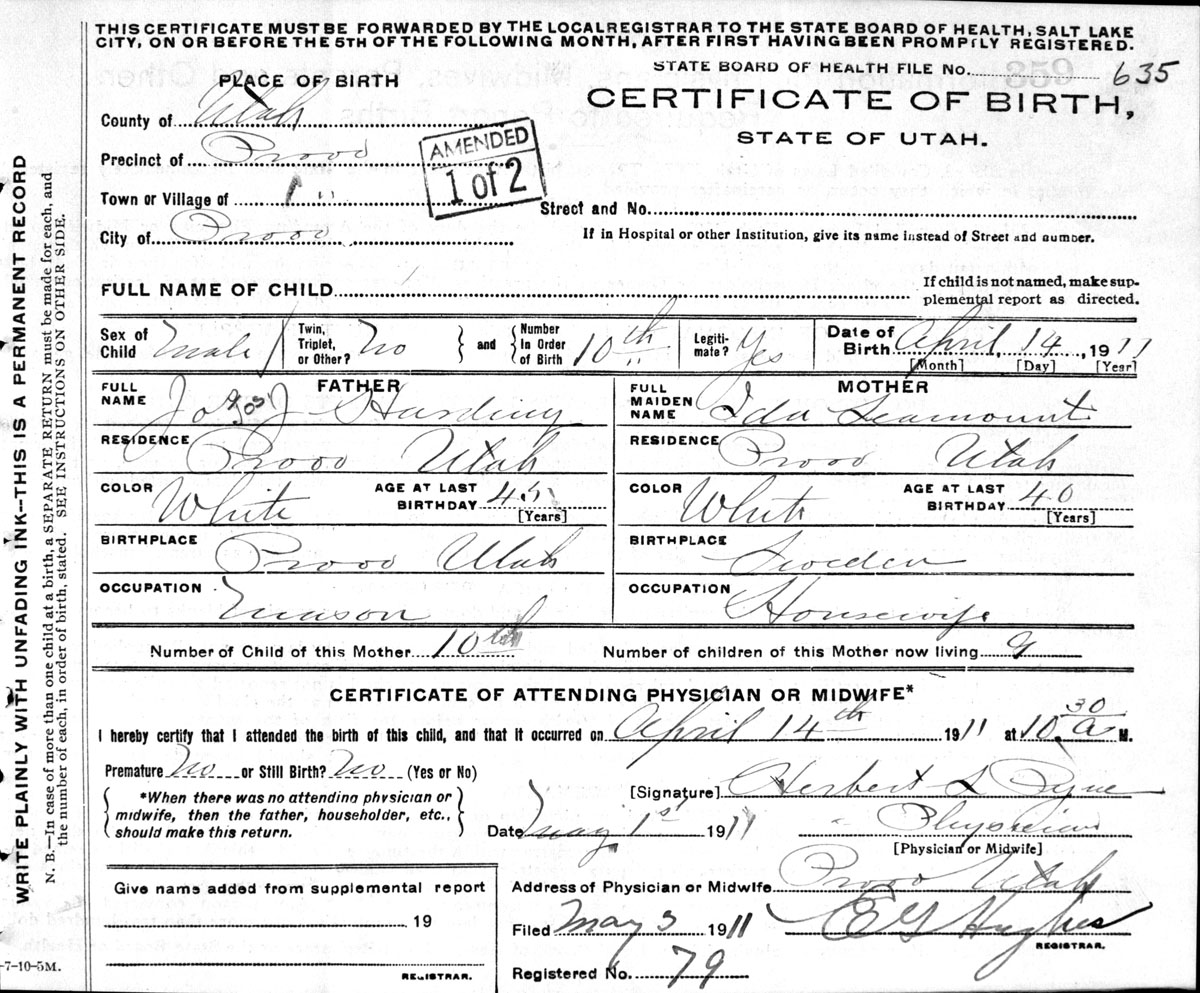 THIS CERTIFICATE MUST BE FORWARDED BY THE LOCAL REGISTRAR TO THE STATE BOARD OF HEALTH, SALT LAKE
CITY, ON OR BEFORE THE 5TH OF THE FOLLOWING MONTH, AFTER FIRST HAVING BEEN PROMPTLY REGISTERED.
STATE BOARD OF HEALTH FILE No. 635
PLACE OF BIRTH
CERTIFICATE OF BIRTH,
STATE OF UTAH.
County of Utah
Precinct of Provo
AMENDED
1 of 2
Town or Village of "
Street and No.
City of Provo
If in Hospital or other Institution, give its name instead of Street and number.
FULL NAME OF CHILD
If child is not named, make sup-
plemental report as directed.
Sex of Child Male
Twin, Triplet, or Other? No
and Number In Order of Birth 10th
Legiti-mate? Yes
Date of Birth April 14, 1911
[Month] [Day] [Year]
FATHER
FULL NAME J Harding
MOTHER
FULL MAIDEN NAME Ida Seamount
RESIDENCE Provo Utah
RESIDENCE Provo Utah
COLOR White AGE AT LAST BIRTHDAY [Years]
COLOR White AGE AT LAST BIRTHDAY 40 [Years]
BIRTHPLACE Provo Utah
BIRTHPLACE Sweden
OCCUPATION Mason
OCCUPATION Housewife
Number of Child of this Mother 10th Number of children of this Mother now living 9
CERTIFICATE OF ATTENDING PHYSICIAN OR MIDWIFE*
I hereby certify that I attended the birth of this child, and that it occurred on April 14th 1911 at 10 30 a M.
Premature No or Still Birth? No (Yes or No)
[Signature] Herbert S Pyne
*When there was no attending physician or
midwife, then the father, householder, etc.,
should make this return.
Date May 1st 1911 Physician
[Physician or Midwife]
Give name added from supplemental report
19
REGISTRAR.
Address of Physician or Midwife Provo Utah
Filed May 3 1911 E G Hughes
REGISTRAR.
Registered No. 79
-7-10-5M.
WRITE PLAINLY WITH UNFADING INK--THIS IS A PERMANENT RECORD
N. B.—In case of more than one child at a birth, a SEPARATE RETURN must be made for each, and
the number of each, in order of birth, stated. SEE INSTRUCTIONS ON OTHER SIDE.